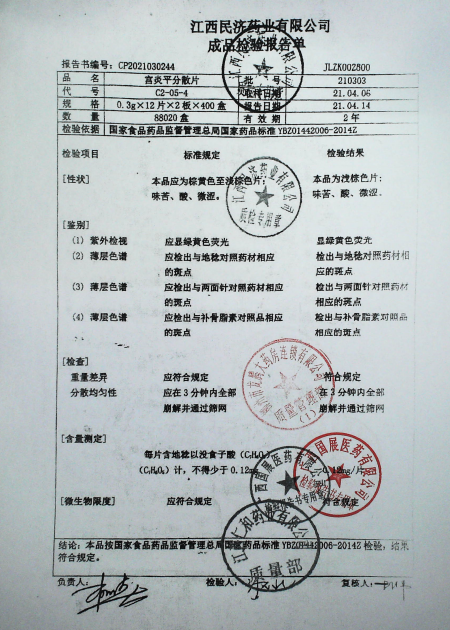 江西民济药业有限公司
成品检验报告单
报告书编号：CP2021030244 JLZK002800
品名 宫炎平分散片 批号 210303
代号 C2-05-4 收样日期 21.04.06
规格 0.3g×12片×2板×400盒 报告日期 21.04.14
数量 88020盒 有效期 2年
检验依据 国家食品药品监督管理总局国家药品标准YBZ01442006-2014Z
检验项目 标准规定 检验结果
[性状] 本品应为棕黄色至浅棕色片； 本品为浅棕色片；
味苦、酸、微涩。 味苦、酸、微涩。
江西民济药业有限公司
质检专用章
[鉴别]
(1) 紫外检视 应显绿黄色荧光 显绿黄色荧光
(2) 薄层色谱 应检出与地稔对照药材相应 检出与地稔对照药材相
的斑点 应的斑点
(3) 薄层色谱 应检出与两面针对照药材相应 检出与两面针对照药材
的斑点 相应的斑点
(4) 薄层色谱 应检出与补骨脂素对照品相应 检出与补骨脂素对照品
的斑点 相应的斑点
大药房连锁有限公司
质量管理部
(1)
[检查]
重量差异 应符合规定 符合规定
分散均匀性 应在3分钟内全部 在3分钟内全部
崩解并通过筛网 崩解并通过筛网
[含量测定]
每片含地稔以没食子酸（C₇H₆O₅）
（C₇H₆O₅）计，不得少于0.12mg 0.12mg/片
国展医药有限公司
[微生物限度] 应符合规定 符合规定
江西仁和药业有限公司
质量部
结论：本品按国家食品药品监督管理总局国家药品标准YBZ01442006-2014Z检验，结果
符合规定。
负责人： 检验人： 复核人：